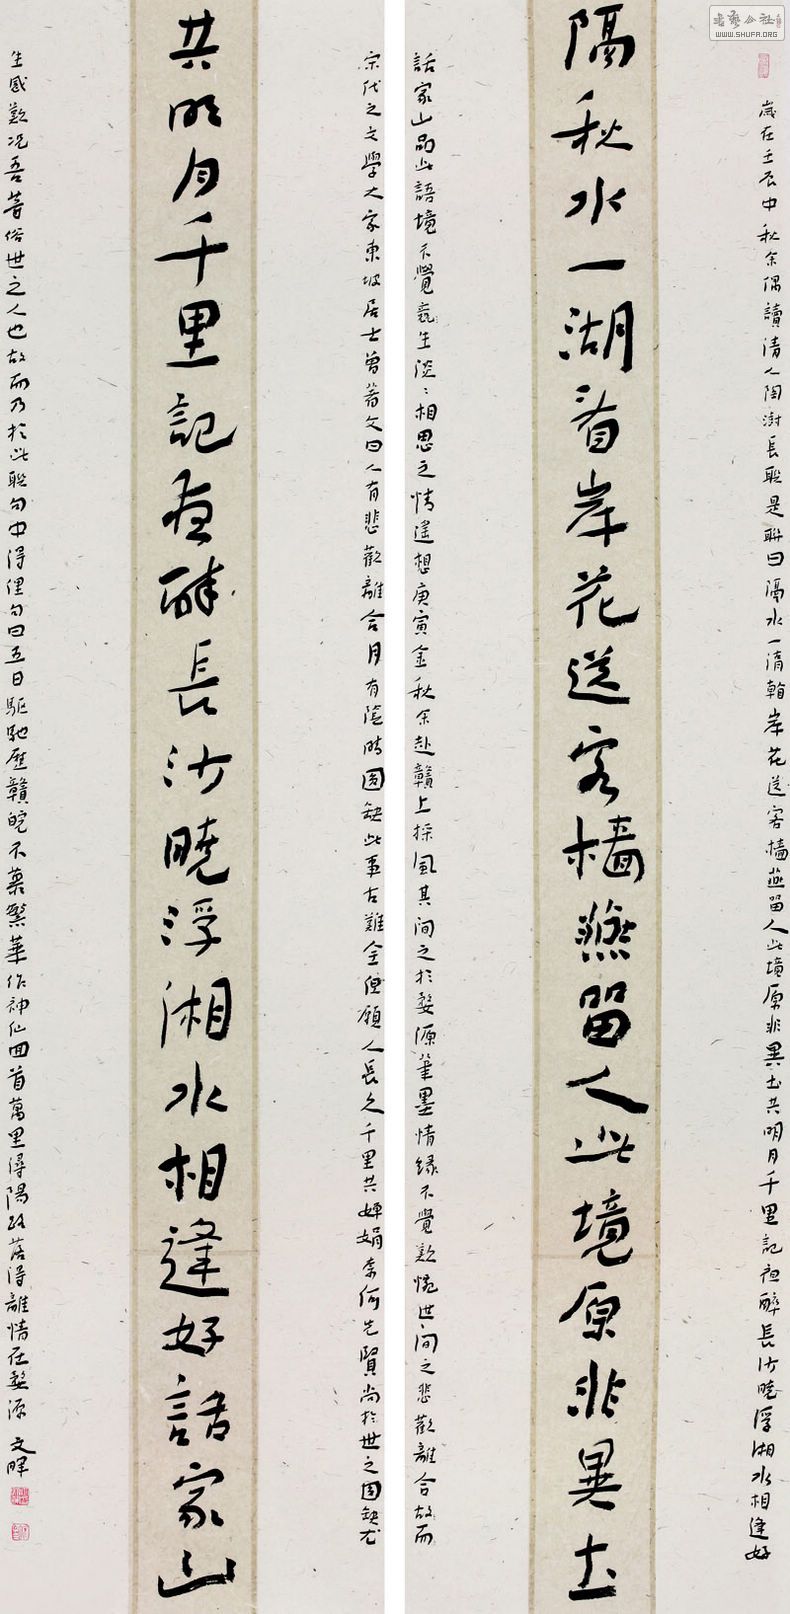 書藝公社
WWW.SHUFA.ORG
歲在壬辰中秋余偶讀清人陶澍長聯是聯曰隔水一岸花送客檣燕留人此境原非異土共明月千里記夜醉長沙曉浮湘水相逢好
隔秋水一湖看岸花送客檣燕留人此境原非異土
話家山品此語境不覺竟生淡淡相思之情遙想庚寅金秋余赴贛上採風其間之於婺源筆墨情緣不覺歎惋世間之悲歡離合故而
宋代之文學大家東坡居士曾著文曰人有悲歡離合月有陰晴圓缺此事古難全但願人長久千里共嬋娟奈何先賢尚於世之圓缺尤
共明月千里記夜醉長沙曉浮湘水相逢好話家山
生感歎況吾等俗世之人也故而乃於此聯句中得俚句曰五日驅馳歷贛皖不慕繁華作神仙回首萬里潯陽路落得離情在婺源 文暉